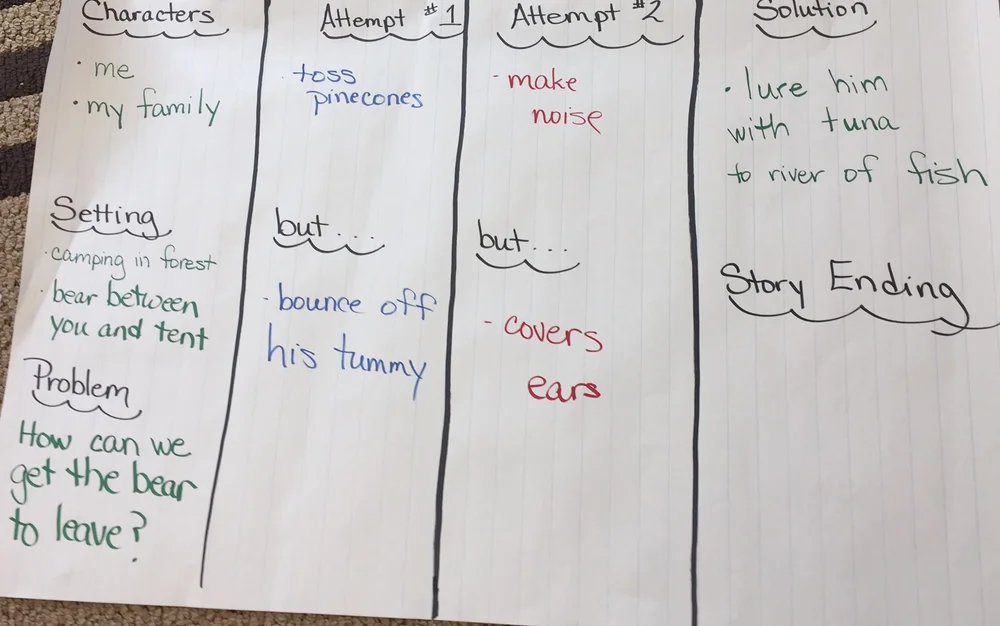 Characters
· me
· my family
Setting
· camping in forest
· bear between
you and tent
Problem
How can we
get the bear
to leave?
Attempt #1
· toss
pinecones
but...
· bounce off
his tummy
Attempt #2
- make
noise
but...
- covers
ears
Solution
· lure him
with tuna
to river of fish
Story Ending